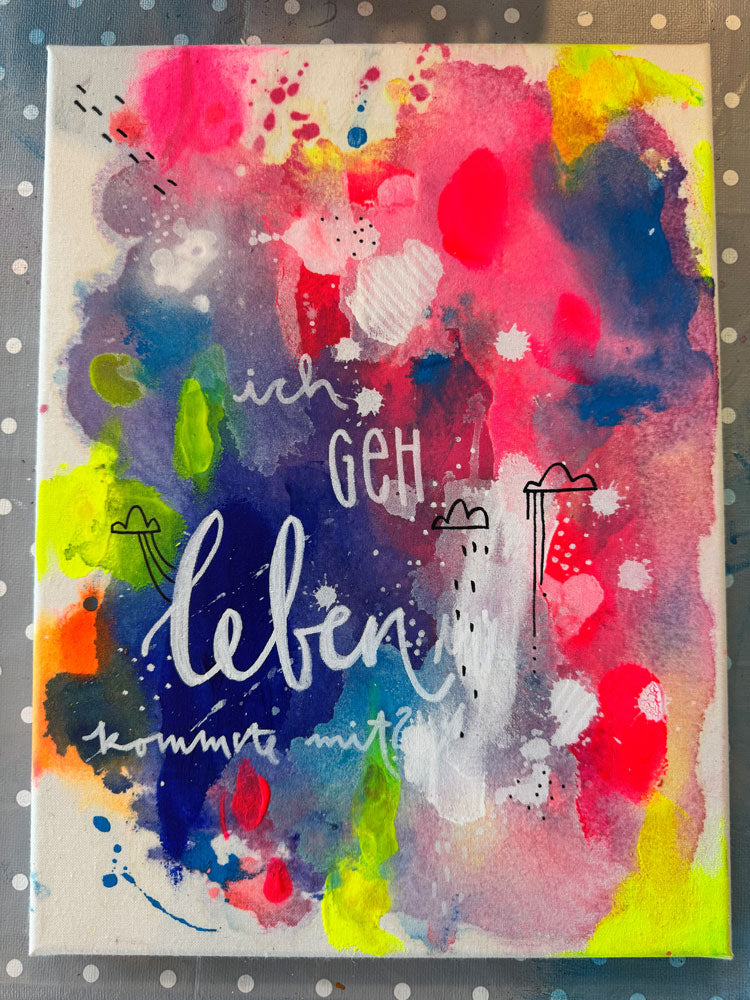 ich
GEH
leben
kommste mit?